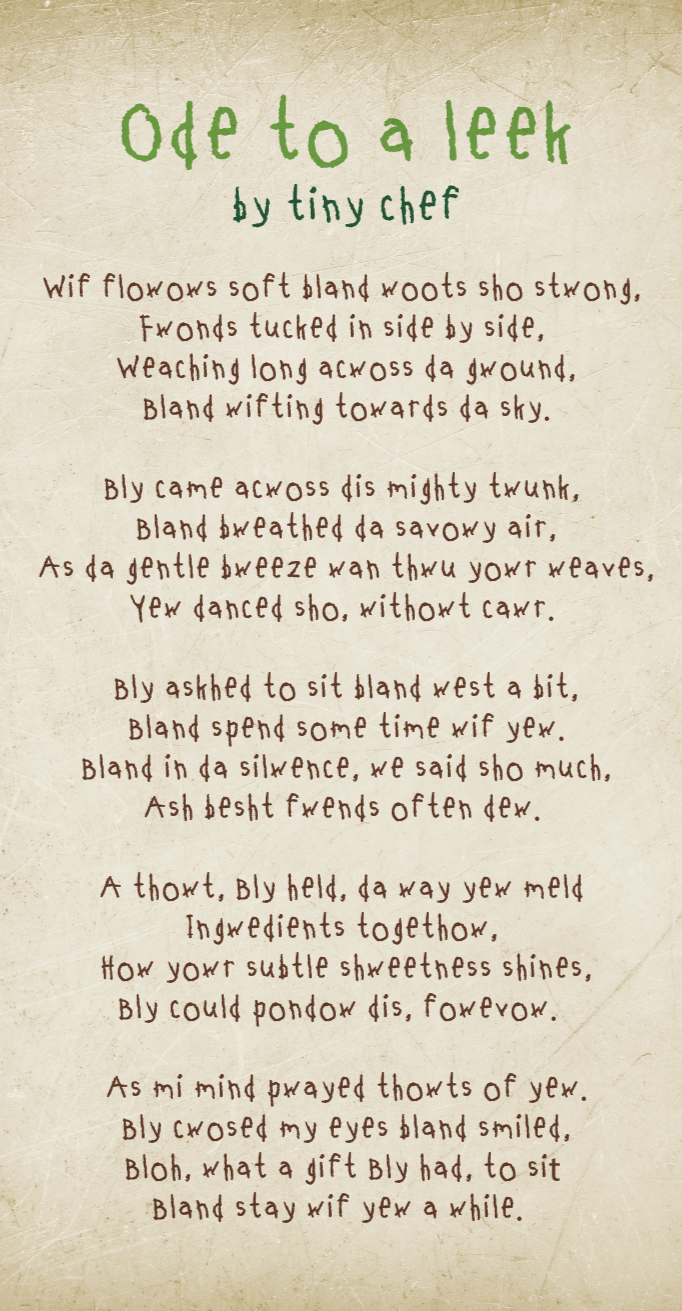 Ode to a leek
by tiny chef
Wif flowows soft bland woots sho stwong,
Fwonds tucked in side by side,
Weaching long acwoss da gwound,
Bland wifting towards da sky.
Bly came acwoss dis mighty twunk,
Bland bweathed da savowy air,
As da gentle bweeze wan thwu yowr weaves,
Yew danced sho, withowt cawr.
Bly askhed to sit bland west a bit,
Bland spend some time wif yew.
Bland in da silwence, we said sho much,
Ash besht fwends often dew.
A thowt, Bly held, da way yew meld
Ingwedients togethow,
How yowr subtle shweetness shines,
Bly could pondow dis, fowevow.
As mi mind pwayed thowts of yew.
Bly cwosed my eyes bland smiled,
Bloh, what a gift Bly had, to sit
Bland stay wif yew a while.